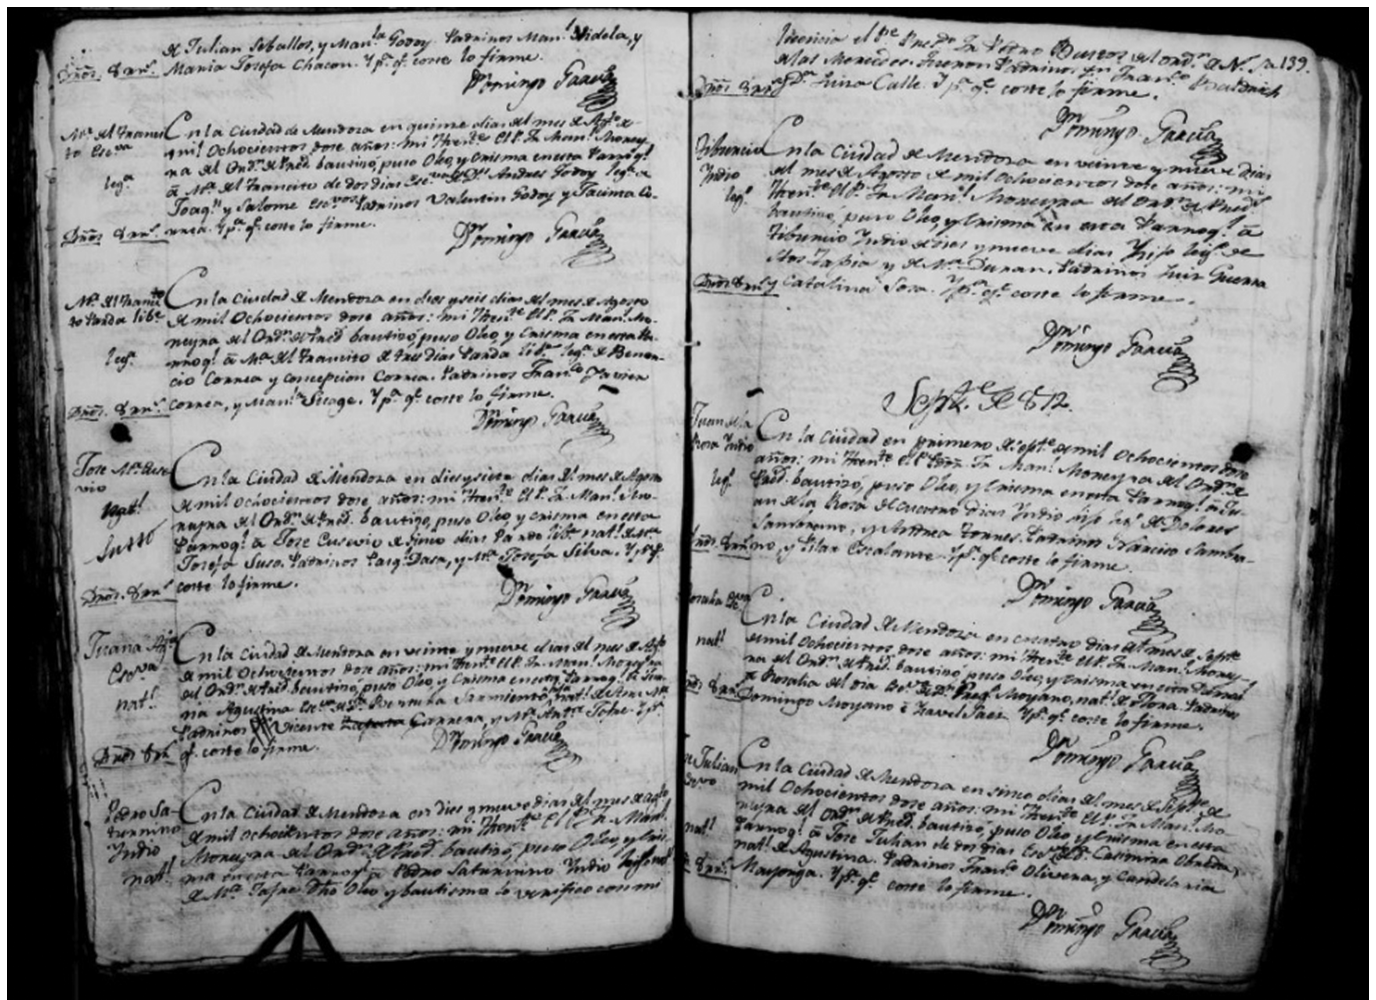 de Julian Seballos, y Man.la Godoy. Padrinos Man.l Videla, y
Maria Josefa Chacon. Y p.a q.e conste lo firme.
Domingo Garcia
M.a del Transi
to Esc.va
leg.a
En la Ciudad de Mendoza en quinse dias del mes de Ag.to de
mil Ochocientos dose años: mi Then.te el P. Fr. Man.l Money
ra del Ord.n de Pred. bautisó, puso Oleo, y Crisma en esta Parroq.l
á M.a del Transito de dos dias Esc.va de D.n Andres Godoy leg.a de
Joaq.n y Salome Esc.vos Padrinos Valentin Godoy y Jacinta Co-
rrea. Y p.a q.e conste lo firme.
Domingo Garcia
M.a del Transi
to Parda libe
leg.a
En la Ciudad de Mendoza en dies y seis dias del mes de Agosto
de mil Ochocientos dose años: mi Then.te el P. Fr. Man.l Mo-
neyra del Ord.n de Pred. bautisó, puso Oleo, y Crisma en esta Pa-
rroq.l á M.a del Transito de tres dias Parda lib.e leg.a de Benan-
cio Correa y Concepcion Correa. Padrinos Fran.co Javier
Correa, y Man.la Y p.a q.e conste lo firme.
Domingo Garcia
Jose M.a Euse
vio
nat.l
En la Ciudad de Mendoza en dies y siete dias del mes de Agosto
de mil Ochocientos dose años: mi Then.te el P. Fr. Man.l Mo-
neyra del Ord.n de Pred. bautisó, puso Oleo y Crisma en esta
Parroq.l á Jose Eusevio de sinco dias Pardo lib.e nat.l de M.a
Josefa Suso. Padrinos Daza, y M.a Josefa Silva. Y p.a q.e
conste lo firme.
Domingo Garcia
Juana Ag.na
Esc.va
nat.l
En la Ciudad de Mendoza en veinte y nueve dias del mes de Ag.to
de mil Ochocientos dose años: mi Then.te el P. Fr. Man.l Moneyra
del Ord.n de Pred. bautisó, puso Oleo, y Crisma en esta Parroq.l á Jua-
na Agustina Esc.va de Sarmiento nat.l de Ana M.a
Padrinos Vicente Carrera, y M.a Ant.a Y p.a
q.e conste lo firme.
Domingo Garcia
Pedro Sa-
turnino
Yndio
nat.l
En la Ciudad de Mendoza en dies y nueve dias del mes de Ag.to
de mil Ochocientos dose años: mi Then.te el P. Fr. Man.l
Moneyra del Ord.n de Pred. bautisó, puso Oleo, y Cris-
ma en esta Parroq.l á Pedro Saturnino Yndio hijo nat.l
de M.a Dho Oleo y bautismo lo verifico con mi
139.
licencia el P.e Fr. Pedro del Ord.n de N. S.a
de las Mercedes. Fueron Padrinos Fran.co
Luisa Calle. Y p.a q.e conste lo firme.
Domingo Garcia
Tiburcio
Yndio
leg.o
En la Ciudad de Mendoza en veinte y nueve dias
del mes de Agosto de mil Ochocientos dose años: mi
Then.te el P. Fr. Man.l Moneyra del Ord.n de Pred.
bautisó, puso Oleo, y Crisma en esta Parroq.l á
Tiburcio Yndio de dies y nueve dias hijo leg.o de
Tapia y de M.a Duran. Padrinos Luis Guerra
y Catalina Sosa. Y p.a q.e conste lo firme.
Domingo Garcia
Sept.e de 812.
Juan de la
Rosa Yndio
leg.o
En la Ciudad en primero de Sept.e de mil Ochocientos dose
años: mi Then.te el P. Fr. Man.l Moneyra del Ord.n de
Pred. bautisó, puso Oleo, y Crisma en esta Parroq.l á Ju-
an de la Rosa de cuatro dias Yndio hijo leg.o de Dolores
Sambrano, y Andrea Torres. Padrinos Narciso Sambra-
no, y Pilar Escalante. Y p.a q.e conste lo firme.
Domingo Garcia
nat.l
En la Ciudad de Mendoza en cuatro dias del mes de Sept.e
de mil Ochocientos dose años: mi Then.te el P. Fr. Man.l Money-
ra del Ord.n de Pred. bautisó, puso Oleo, y Crisma en esta Parroq.l
á Rosalia del dia Esc.va de Moyano, nat.l de Flora. Padrinos
Domingo Moyano é Ysavel Saez. Y p.a q.e conste lo firme.
Domingo Garcia
Julian
nat.l
En la Ciudad de Mendoza en sinco dias del mes de Sept.e de
mil Ochocientos dose años: mi Then.te el P. Fr. Man.l Mo-
neyra del Ord.n de Pred. bautisó, puso Oleo y Crisma en esta
Parroq.l á Jose Julian de dos dias Esc.vo de D.a Casimira Obredor,
nat.l de Agustina. Padrinos Fran.co Olivera, y Candelaria
Mayorga. Y p.a q.e conste lo firme.
Domingo Garcia